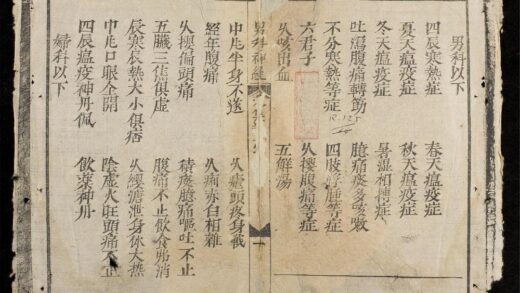 男科以下
四辰寒熱症 春天瘟疫症
夏天瘟疫症 秋天瘟疫症
冬天瘟疫症 暑湿相搏症
吐瀉腹痛轉筋 臆痛痰多咳嗽
不分寒熱等症 四肢浮腫等症
六君子 腹痛等症
久咳出血 五解湯
男科神經 一
中 半身不遂 久瘧頭疼身戰
經年腹痛 久痢赤白相雜
久 偏頭痛 積痰臆痛嘔吐不止
五臟三焦俱虛 腹痛不止飲食弗消
辰寒辰熱大小俱痞 泄身体大热
中 口眼全開 陰虛火旺頭痛不止
四辰瘟疫神丹佩 飲藥神丹
婦科以下